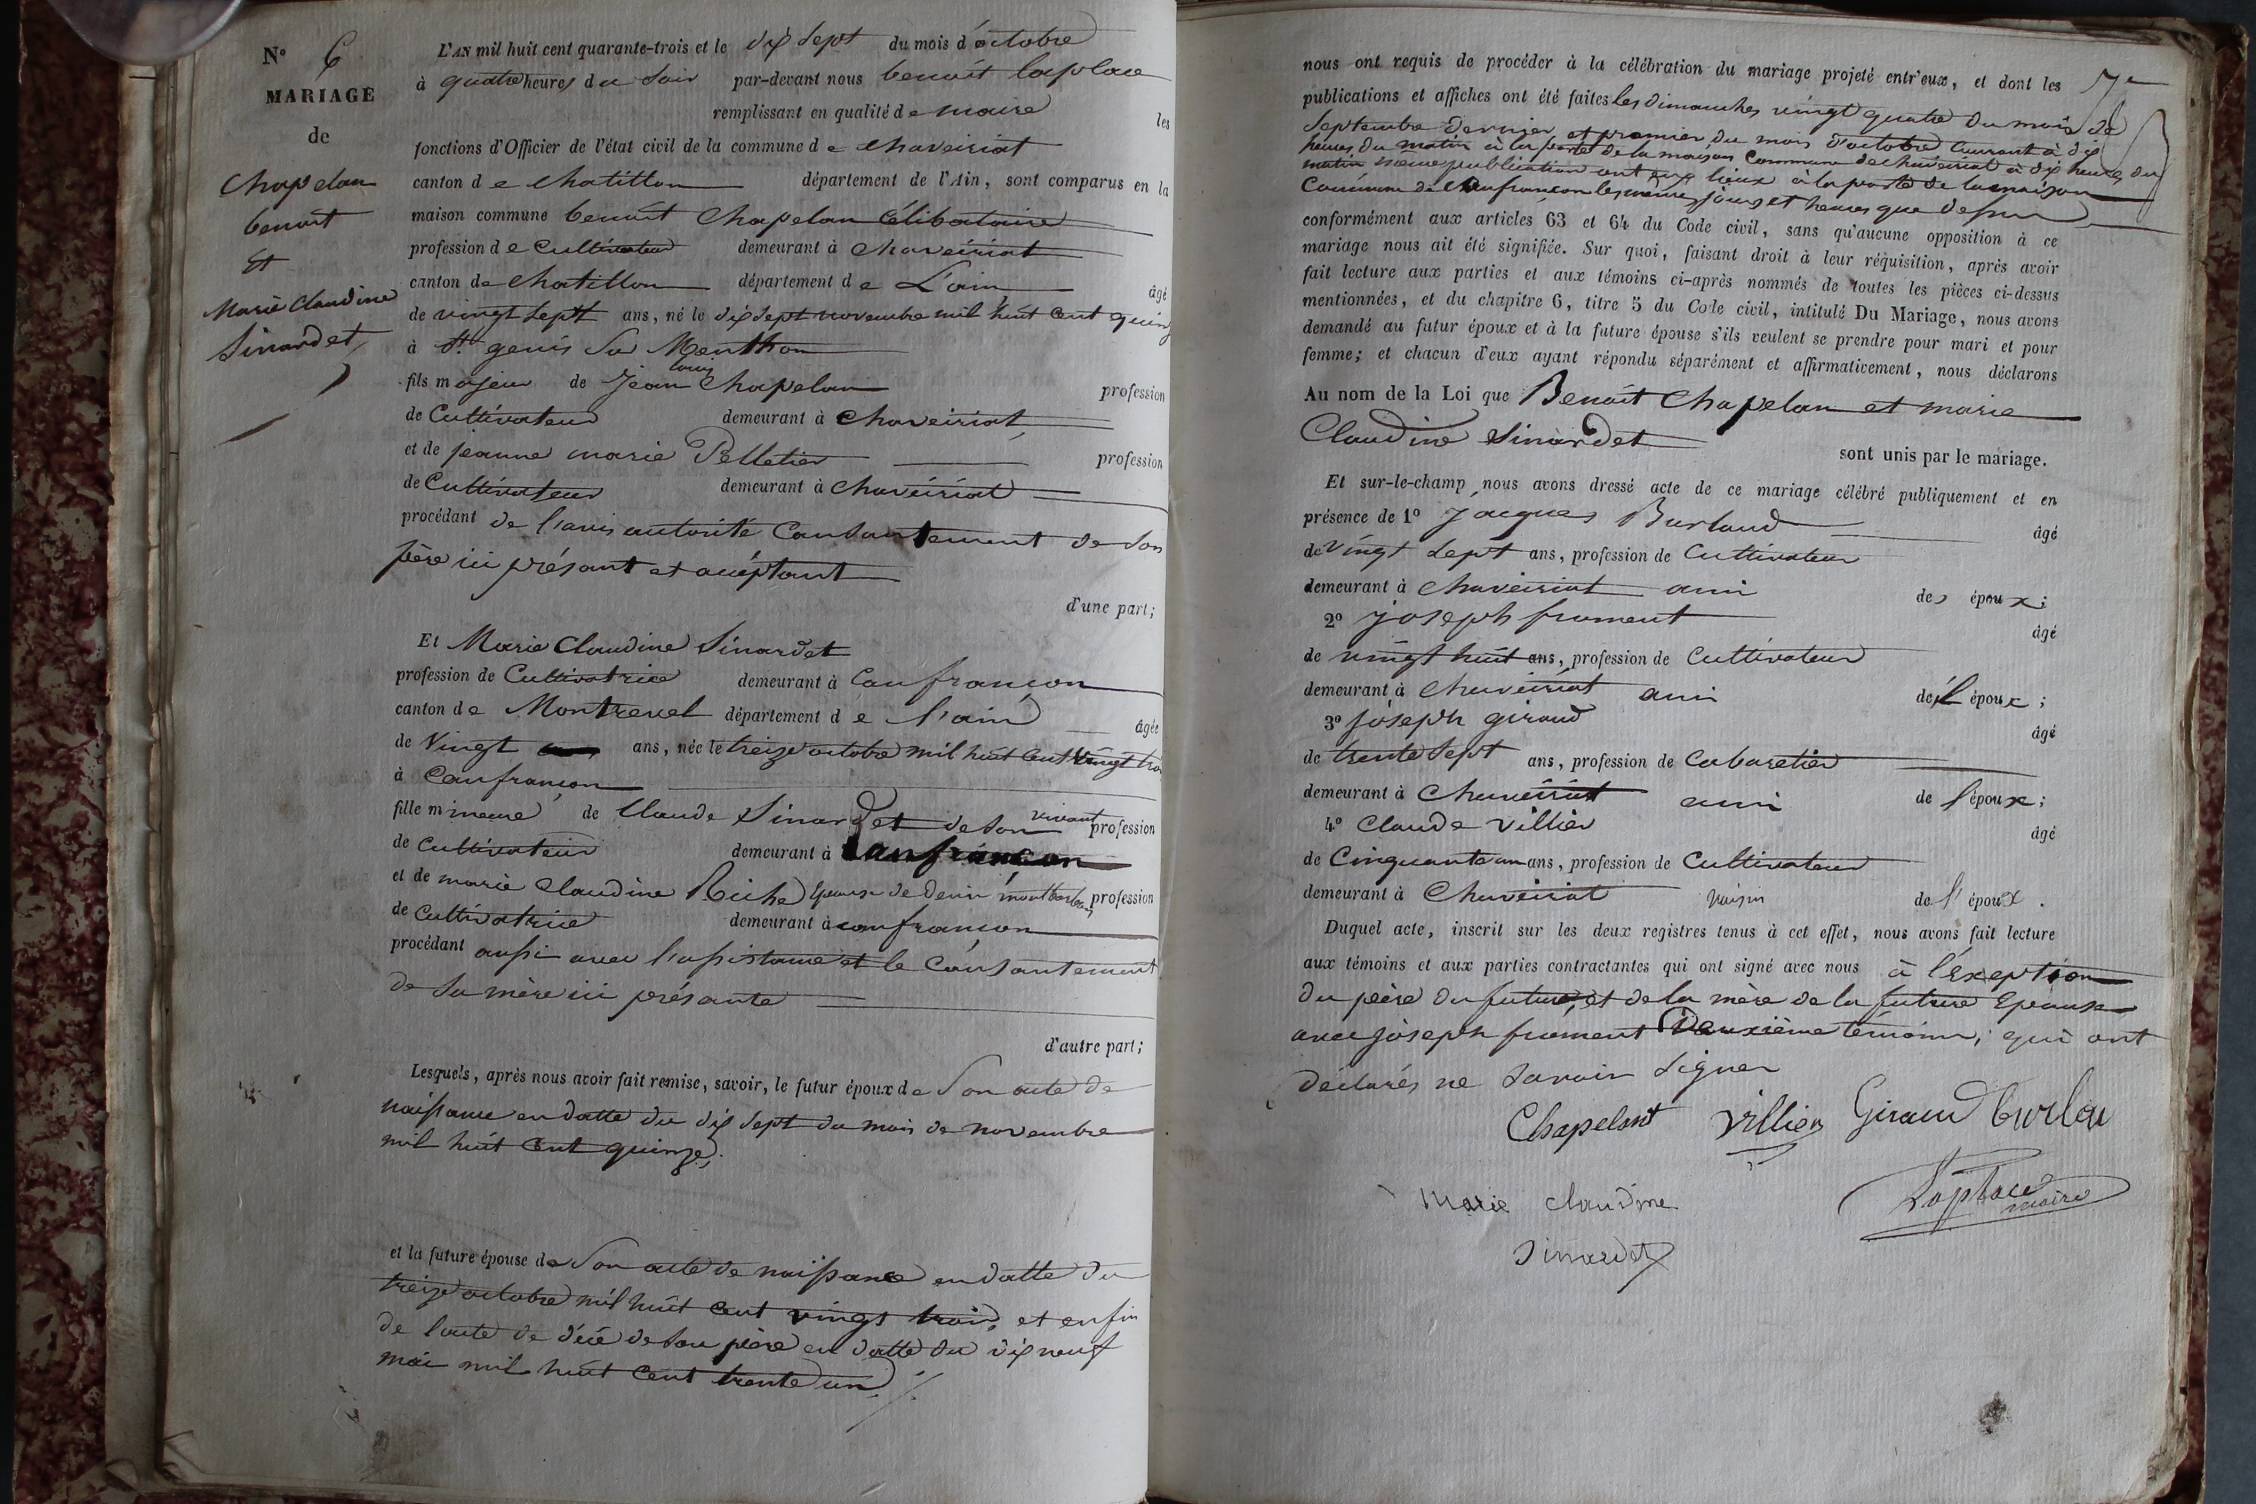 N° 6
MARIAGE
de
Chapelan
benoit
Et
Marie Claudine
Sinardet
L'AN mil huit cent quarante-trois et le dix Sept du mois d'octobre
à quatre heures du Soir par-devant nous benoit laplace
remplissant en qualité de maire les
fonctions d'Officier de l'état civil de la commune de chaveiriat
canton de chatillon département de l'Ain, sont comparus en la
maison commune benoit Chapelan Célibataire
profession de Cultivateur demeurant à chaveiriat
canton de chatillon département de L'ain âgé
de vingt Sept ans, né le dix Sept novembre mil huit Cent quinze
à St. genis Su Menthon
fils majeur de Jean louis Chapelan profession
de Cultivateur demeurant à chaveiriat
et de jeanne marie Pelletier profession
de Cultivateur demeurant à chaveiriat
procédant de l'avis autorité Consantement de Son
père ici présant et acceptant
d'une part;
Et Marie Claudine Sinardet
profession de Cultivatrice demeurant à Confrançon
canton de Montrevel département de l'ain âgée
de Vingt ans, née le treize octobre mil huit Cent vingt trois
à Confrançon
fille mineure de Claude Sinardet de Son vivant profession
de Cultivateur demeurant à Confrançon
et de marie Claudine Riche Epouse de Denis profession
de Cultivatrice demeurant à Confrançon
procédant aussi avec l'assistance et le Consantement
de Sa mère ici présante
d'autre part;
Lesquels, après nous avoir fait remise, savoir, le futur époux de Son acte de
naissance en datte du dix Sept du mois de novembre
mil huit Cent quinze;
et la future épouse de Son acte de naissance en datte du
treize octobre mil huit Cent vingt trois, et enfin
de l'acte de décé de Son père en datte du dix neuf
mai mil huit Cent trente un
nous ont requis de procéder à la célébration du mariage projeté entr'eux, et dont les
publications et affiches ont été faites les dimanches vingt quatre du mois de
Septembre dernier et premier du mois d'octobre Courant à dix
heures du matin à la porte de la maison Commune de chaveiriat à dix heures du
matin publication ont eux lieux à la porte de la maison
Commune de Confrançon les mêmes jours et heures que dessus
conformément aux articles 63 et 64 du Code civil, sans qu'aucune opposition à ce
mariage nous ait été signifiée. Sur quoi, faisant droit à leur réquisition, après avoir
fait lecture aux parties et aux témoins ci-après nommés de toutes les pièces ci-dessus
mentionnées, et du chapitre 6, titre 5 du Code civil, intitulé Du Mariage, nous avons
demandé au futur époux et à la future épouse s'ils veulent se prendre pour mari et pour
femme; et chacun d'eux ayant répondu séparément et affirmativement, nous déclarons
Au nom de la Loi que Benoit Chapelan et marie
Claudine Sinardet
sont unis par le mariage.
Et sur-le-champ nous avons dressé acte de ce mariage célébré publiquement et en
présence de 1° Jacques Burlaud âgé
de Vingt Sept ans, profession de Cultivateur
demeurant à Chaveiriat ami des époux;
2° joseph froment âgé
de vingt huit ans, profession de Cultivateur
demeurant à Chaveiriat ami de l'époux;
3° joseph giraud âgé
de trente Sept ans, profession de Cabaretier
demeurant à Chaveiriat ami de l'époux;
4° Claude Villier âgé
de Cinquante un ans, profession de Cultivateur
demeurant à Chaveiriat voisin de l'époux.
Duquel acte, inscrit sur les deux registres tenus à cet effet, nous avons fait lecture
aux témoins et aux parties contractantes qui ont signé avec nous à l'exeption
du père du future, et de la mère de la future Epouse
avec joseph froment Deuxième témoin, qui ont
déclarés ne Savoir Signer
Chapelant Villier Giraud burlou
Marie Claudine
Sinardet
Laplace
maire